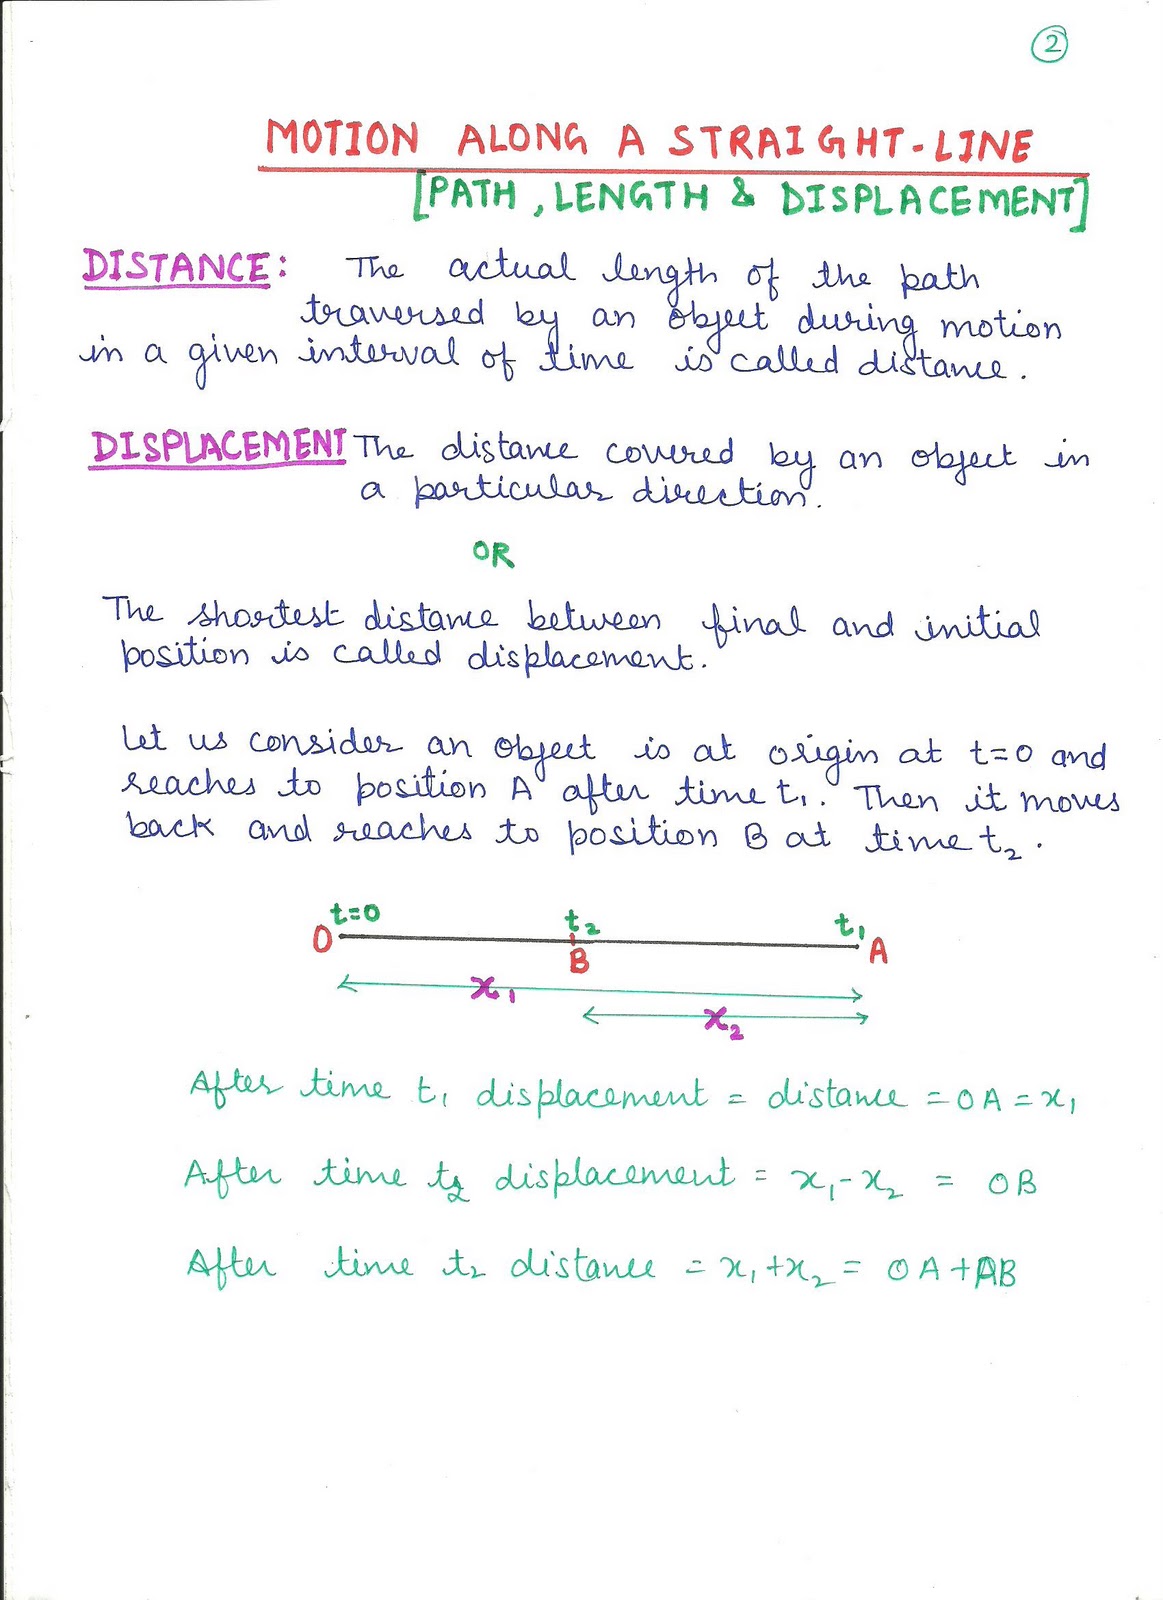 2
MOTION ALONG A STRAIGHT-LINE
[PATH, LENGTH & DISPLACEMENT]
DISTANCE: The actual length of the path
traversed by an object during motion
in a given interval of time is called distance.
DISPLACEMENT The distance covered by an object in
a particular direction.
OR
The shortest distance between final and initial
position is called displacement.
Let us consider an object is at origin at t=0 and
reaches to position A after time t₁. Then it moves
back and reaches to position B at time t₂.
t=0 t₂ t₁
O B A
x₁
x₂
After time t₁ displacement = distance = OA = x₁
After time t₂ displacement = x₁-x₂ = OB
After time t₂ distance = x₁+x₂ = OA+AB